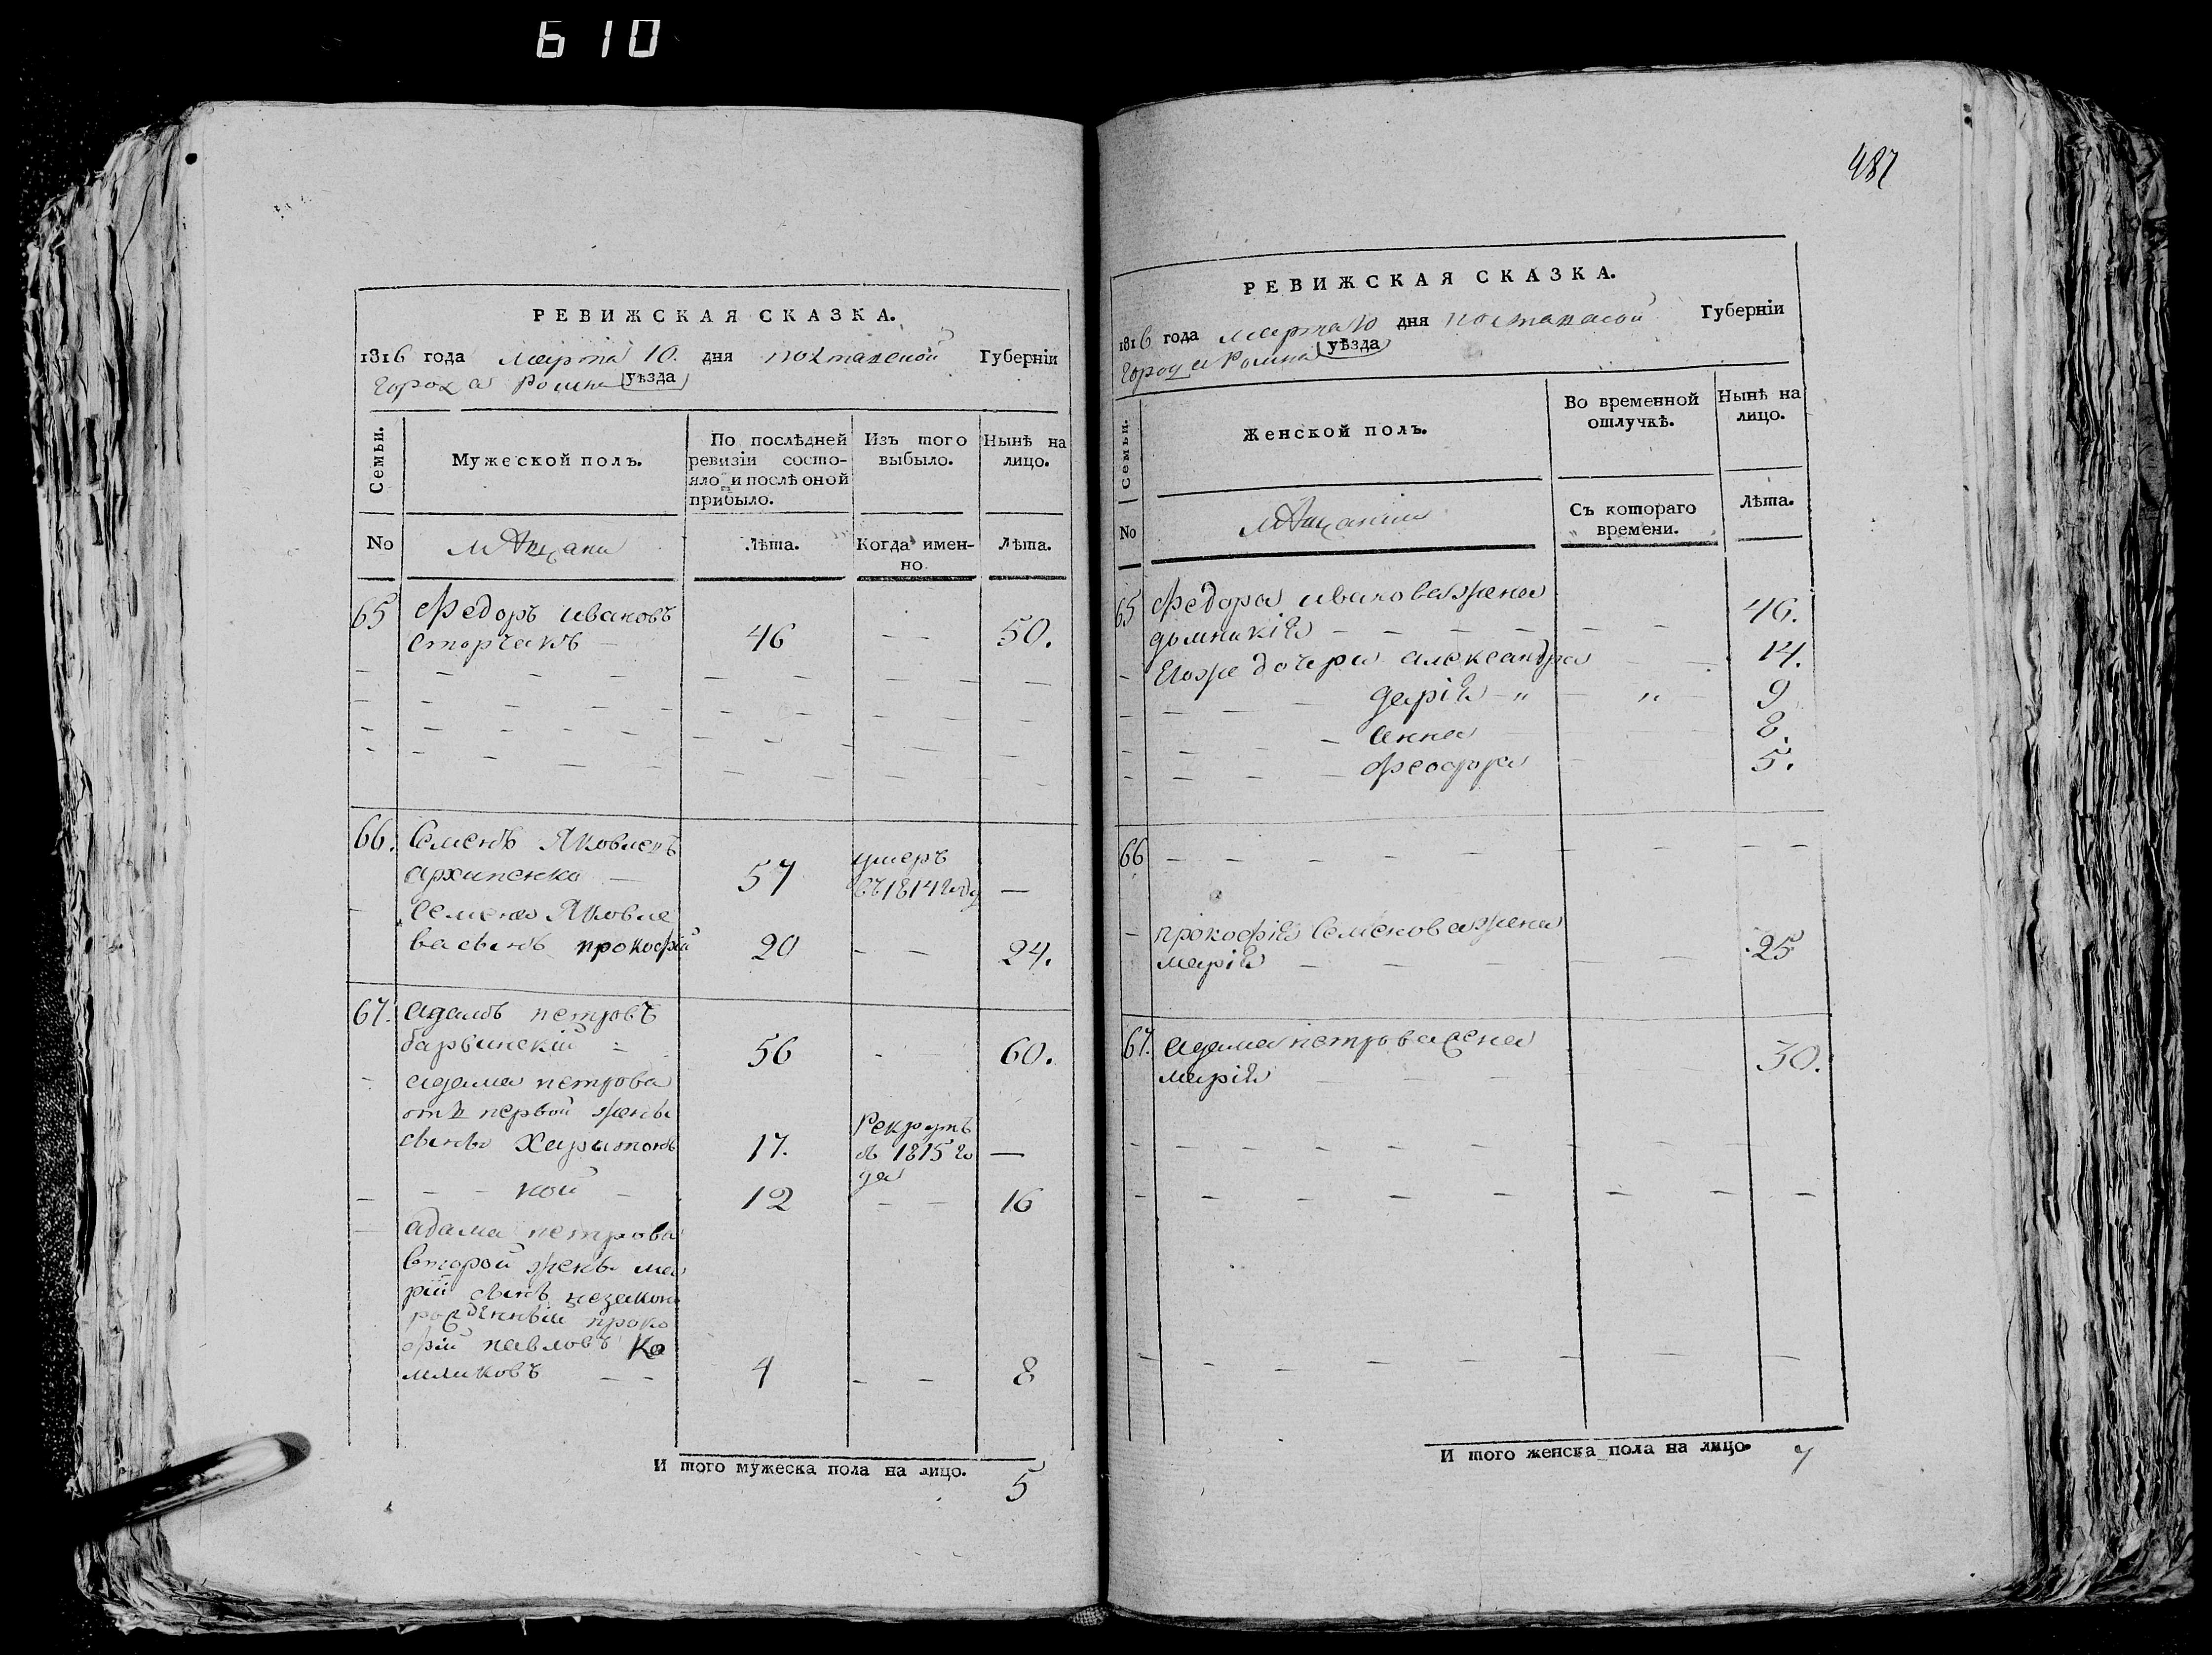 610
487
РЕВИЖСКАЯ СКАЗКА.
1816 года марта 10. дня полтавской Губерніи
города Ромна уѣзда
Семьи.
Мужеской полъ.
По послѣдней ревизіи состо-
яло и послѣ оной
прибыло.
Изъ того
выбыло.
Нынѣ на
лицо.
No
мѣщани
Лѣта.
Когда имен-
но.
Лѣта.
65 Федоръ ивановъ
сторчакъ — 46 — — 50.
66. Семенъ Яковлевъ
архипенко — 57 умеръ
въ 1814 году —
Семена Яковле
ва сынъ прокофій 20 — — 24.
67. адамъ петровъ
барвинскій 56 - 60.
адама петрова
отъ первой жены
сынъ Харитонъ 17. Рекрутъ
въ 1815 го
да —
— — — кой — 12 — — 16
— адама петрова
второй жены ма
рій сынъ незакон
рожденный проко
фій павловъ Ко
мликовъ — — 4 — — 8
И того мужеска пола на лицо. 5
РЕВИЖСКАЯ СКАЗКА.
1816 года марта 10 дня полтавской Губерніи
города Ромна уѣзда
Семьи.
Женской полъ.
Во временной
отлучкѣ.
Нынѣ на
лицо.
No
мѣщанки
Съ котораго
времени.
Лѣта.
65 Федора иванова жена
домникія — — — — — — 46.
Егоже дочери александра — — 14.
— — — дарія — " — " — 9
— — — — анна 8.
— — — — феофра — 5.
66 — — — — — — — —
— прокофія Семенова жена
марія — — — — — 25
67. адама петрова жена
марія — — — 30.
И того женска пола на лицо. 7